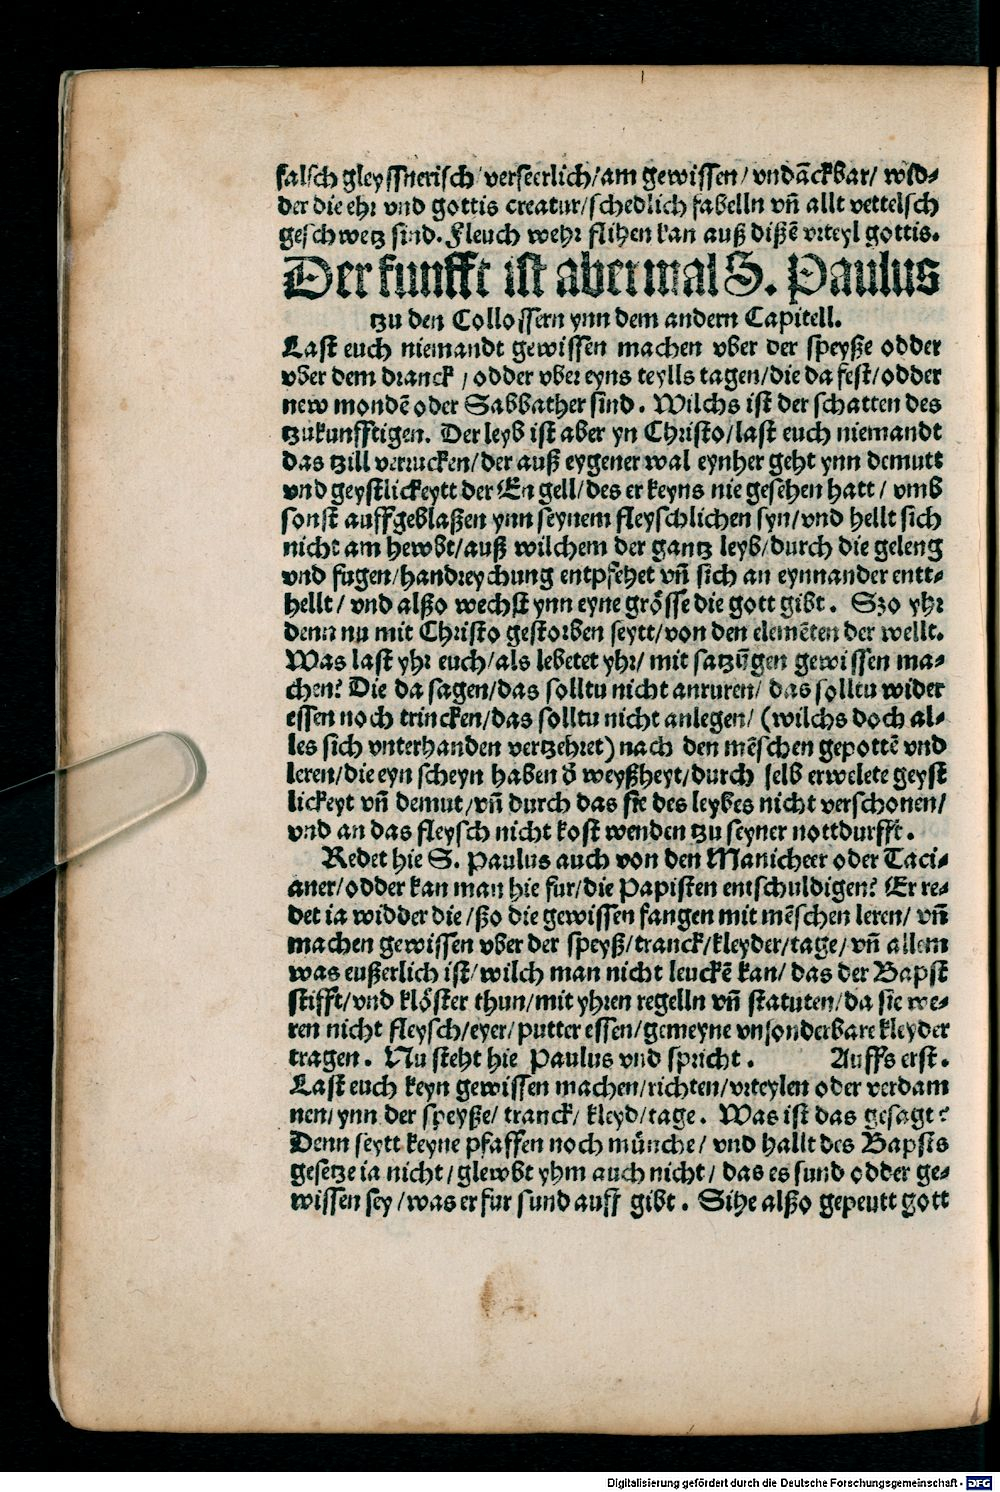 falsch gleyssnerisch/verseerlich/am gewissen/vndãckbar/wid-
der die ehr vnd gottis creatur/schedlich fabelln vñ allt vettelsch
geschwetz sind. Fleuch wehr flihen kan auß dißẽ vrteyl gottis.
Der funfft ist abermal S. Paulus
tzu den Collossern ynn dem andern Capitell.
Last euch niemandt gewissen machen vber der speyße odder
vber dem dranck/odder vber eyns teylls tagen/die da fest/odder
new mondẽ oder Sabbather sind. Wilchs ist der schatten des
tzukunfftigen. Der leyb ist aber yn Christo/last euch niemandt
das tzill verrucken/der auß eygener wal eynher geht ynn demutt
vnd geystlickeytt der Engell/des er keyns nie gesehen hatt/vmb
sonst auffgeblaßen ynn seynem fleyschlichen syn/vnd hellt sich
nicht am hewbt/auß wilchem der gantz leyb/durch die geleng
vnd fugen/handreychung entpfehet vñ sich an eynnander entt-
hellt/vnd alßo wechst ynn eyne grösse die gott gibt. Szo yhr
denn nu mit Christo gestorben seytt/von den elemẽten der wellt.
Was last yhr euch/als lebetet yhr/mit satzũgen gewissen ma-
chen? Die da sagen/das solltu nicht anruren/das solltu wider
essen noch trincken/das solltu nicht anlegen/(wilchs doch al-
les sich vnterhanden vertzehret) nach den mẽschen gepottẽ vnd
leren/die eyn scheyn haben d̃ weyßheyt/durch selb erwelete geyst
lickeyt vñ demut/vñ durch das sie des leybes nicht verschonen/
vnd an das fleysch nicht kost wenden tzu seyner nottdurfft.
Redet hie S. Paulus auch von den Manicheer oder Taci-
aner/odder kan man hie fur/die Papisten entschuldigen? Er re-
det ia widder die/ßo die gewissen fangen mit mẽschen leren/vñ
machen gewissen vber der speyß/tranck/kleyder/tage/vñ allem
was eußerlich ist/wilch man nicht leuckẽ kan/das der Bapst
stifft/vnd klöster thun/mit yhren regelln vñ statuten/da sie we-
ren nicht fleysch/eyer/putter essen/gemeyne vnsonderbare kleyder
tragen. Nu steht hie Paulus vnd spricht. Auffs erst.
Last euch keyn gewissen machen/richten/vrteylen oder verdam
nen/ynn der speyße/tranck/kleyd/tage. Was ist das gesagt?
Denn seytt keyne pfaffen noch münche/vnd hallt des Bapsts
gesetze ia nicht/glewbt yhm auch nicht/das es sund odder ge-
wissen sey/was er fur sund auff gibt. Sihe alßo gepeutt gott
Digitalisierung gefördert durch die Deutsche Forschungsgemeinschaft - DFG